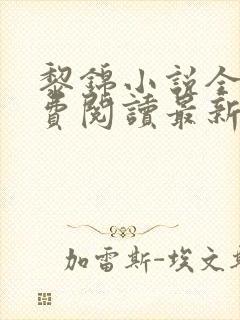 黎錦小說全
費閱讀最新
加雷斯-埃文斯